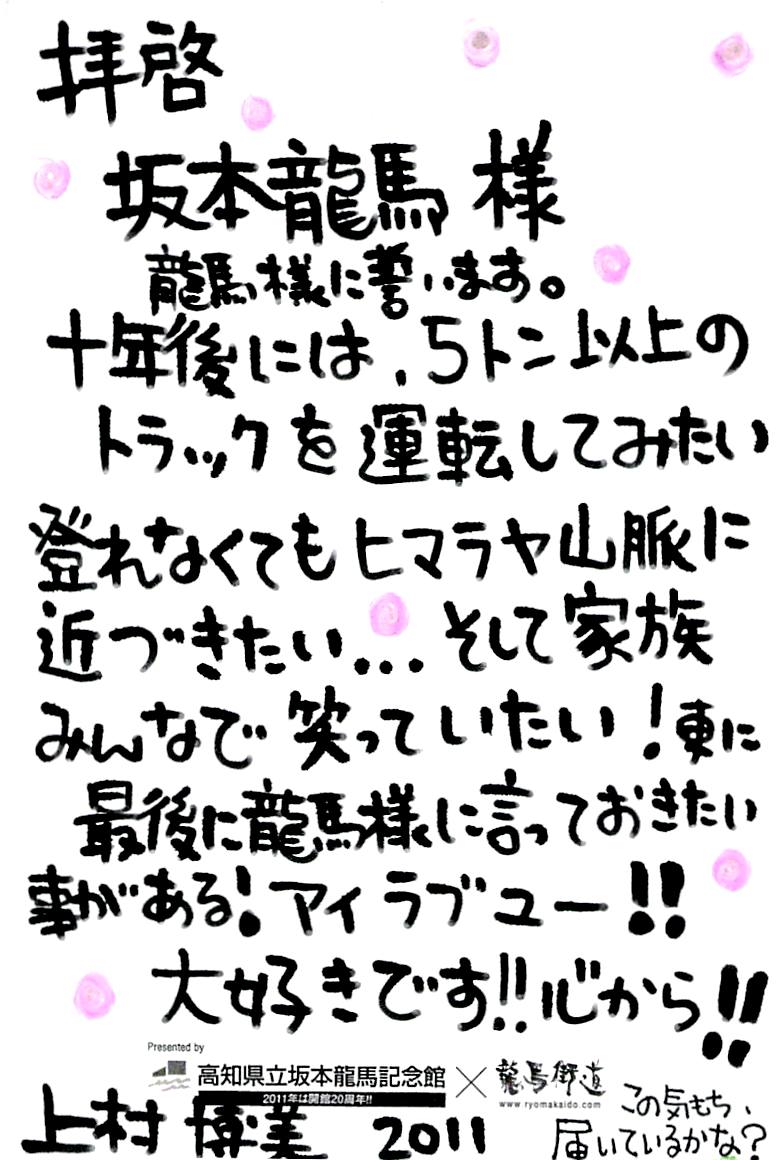 拝啓
坂本龍馬 様
龍馬様に誓います。
十年後には、5トン以上の
トラックを運転してみたい
登れなくてもヒマラヤ山脈に
近づきたい... そして家族
みんなで 笑っていたい! 更に
最後に龍馬様に言っておきたい
事がある! アイ ラブ ユー!!
大好きです!! 心から!!
Presented by
高知県立坂本龍馬記念館 × 龍馬街道
2011年は開館20周年!! www.ryomakaido.com
上村 博美 2011
この気もち、
届いているかな?